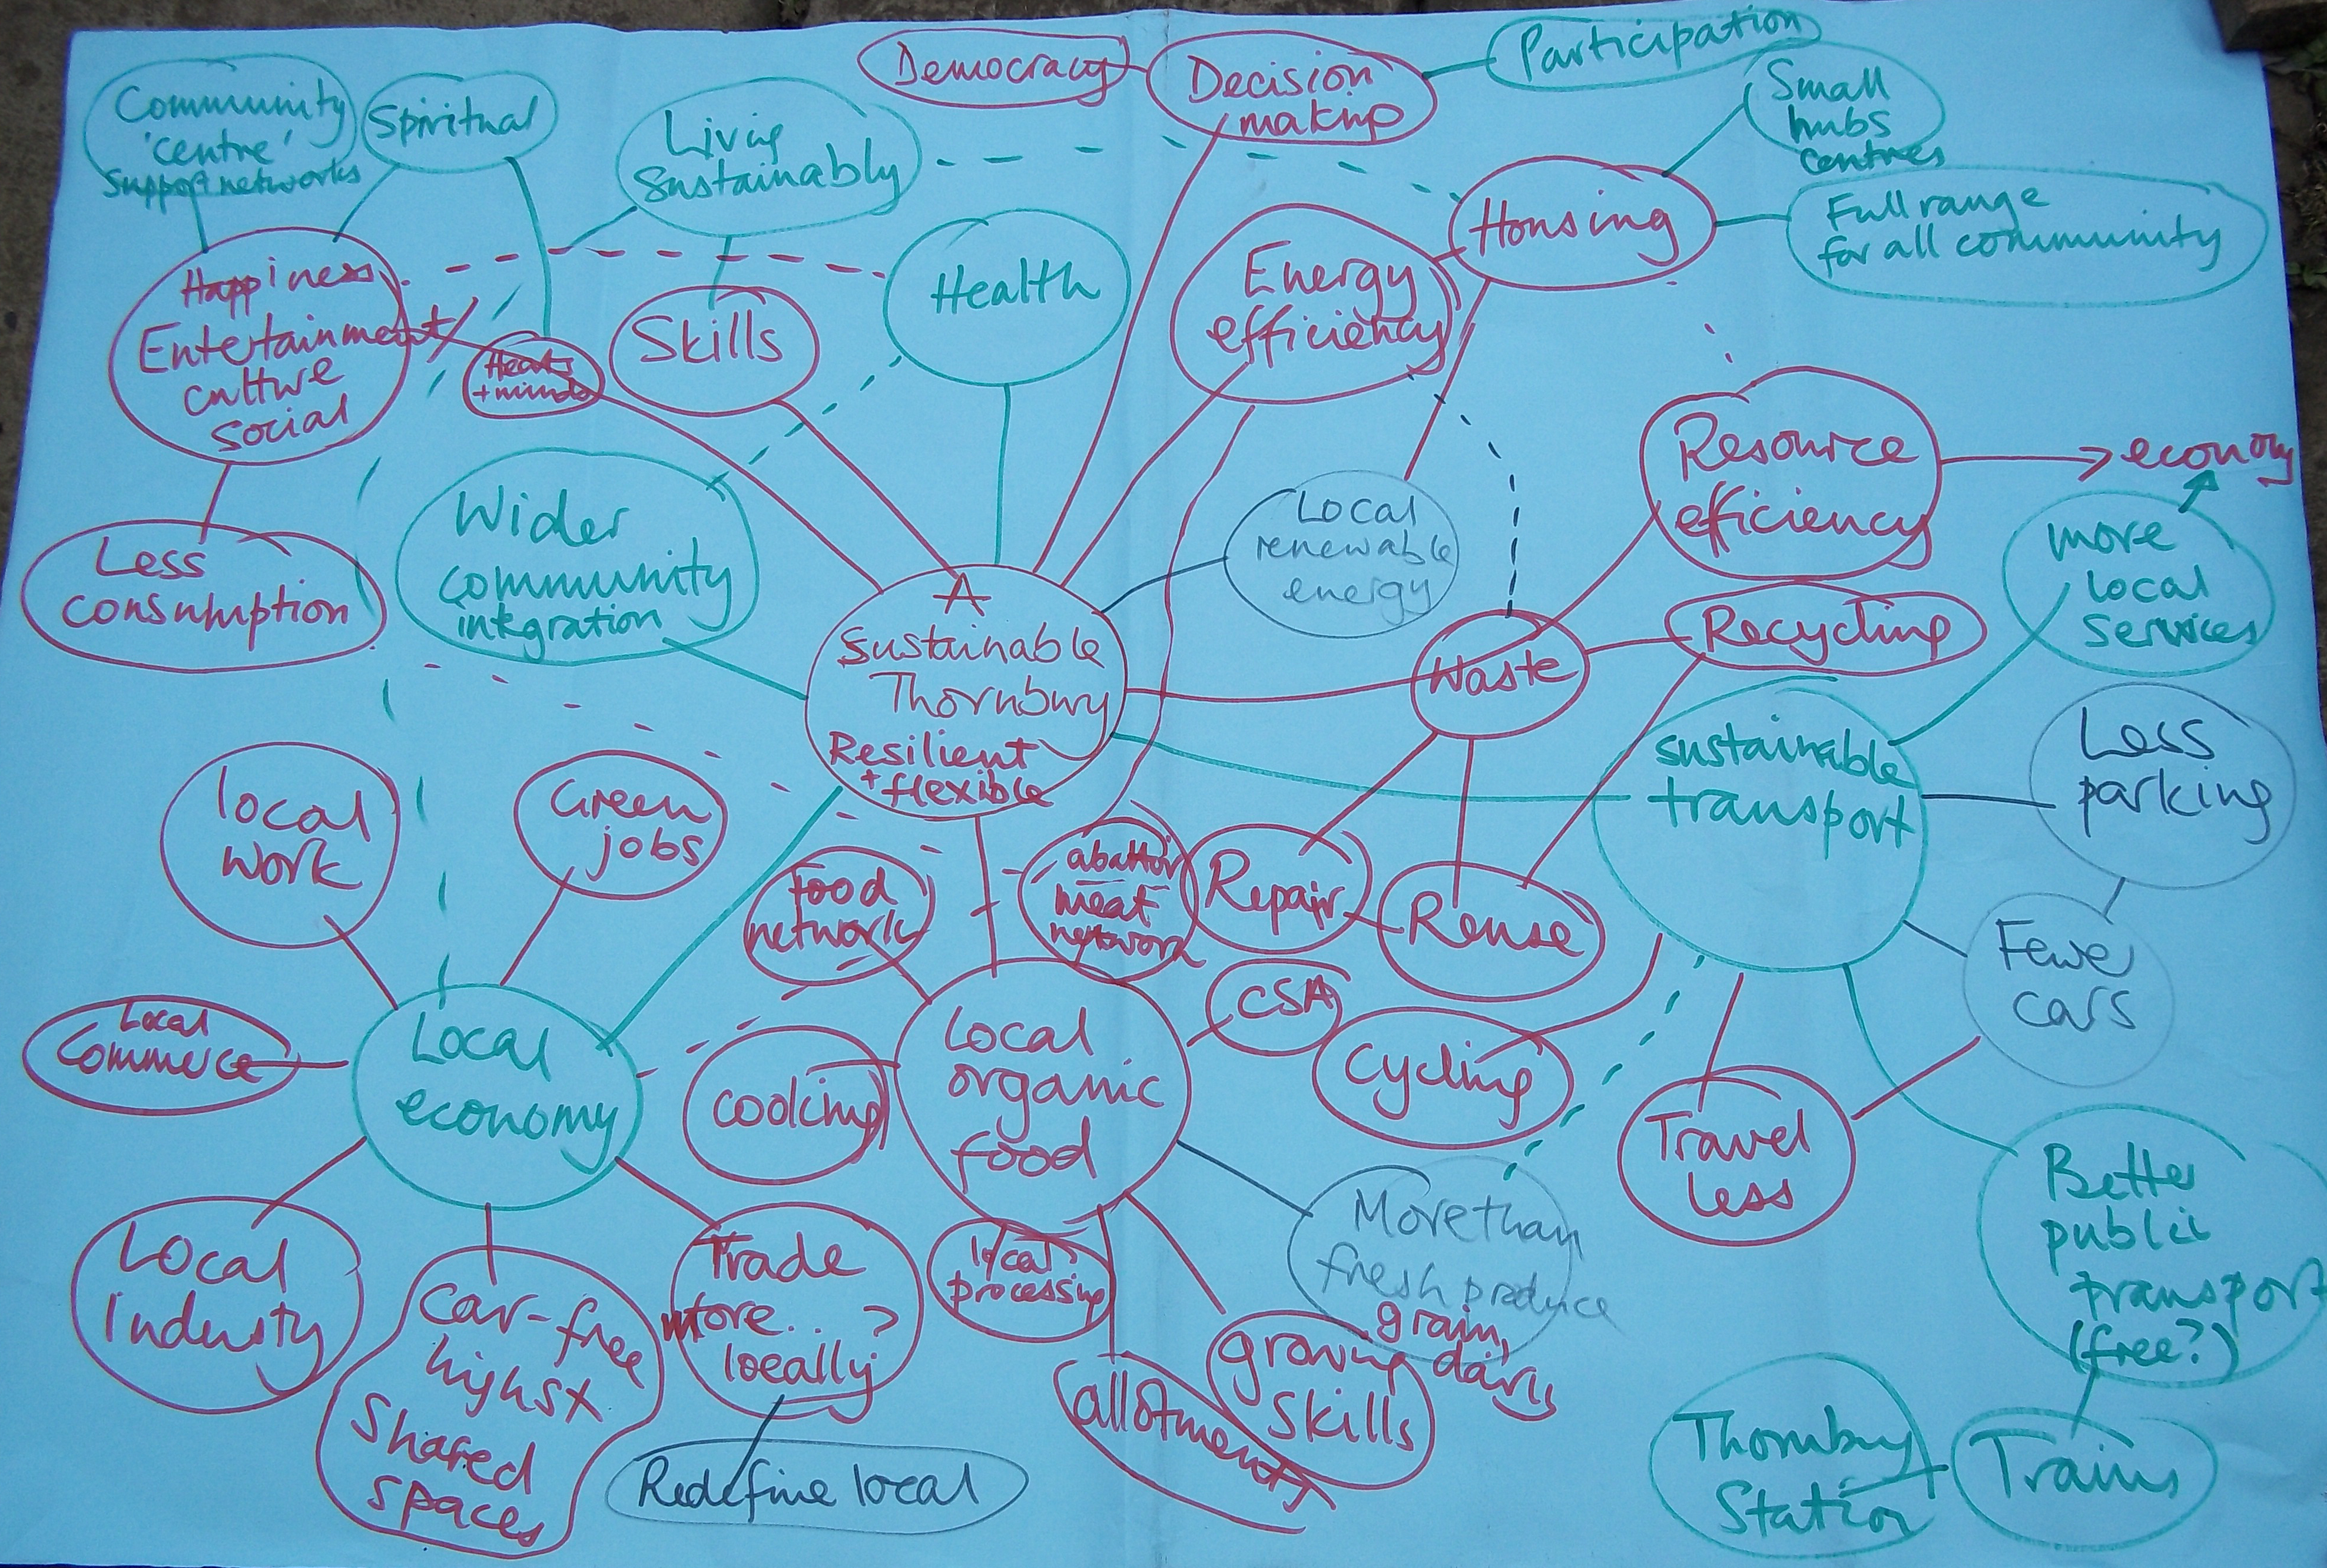 Democracy
Decision
making
Participation
Community
'centre'
Support networks
Spiritual
Living
Sustainably
Small
hubs
centres
Housing
Full range
for all community
Happiness
Entertainment
culture
social
Hearts
+ minds
Skills
Health
Energy
efficiency
Resource
efficiency
economy
Less
consumption
Wider
community
integration
Local
renewable
energy
more
local
services
A
Sustainable
Thornbury
Resilient
+ flexible
Waste
Recycling
sustainable
transport
Less
parking
local
work
Green
jobs
food
network
abattoir
meat
network
Repair
Reuse
Fewer
cars
Local
Commerce
Local
economy
cooking
Local
organic
food
CSA
Cycling
Travel
less
Better
public
transport
(free?)
Local
Industy
Car-free
high st
Shared
spaces
Trade
more...?
locally
local
processing
More than
fresh produce
grain,
dairy
growing
skills
allotments
Redefine local
Thornbury
Station
Trains